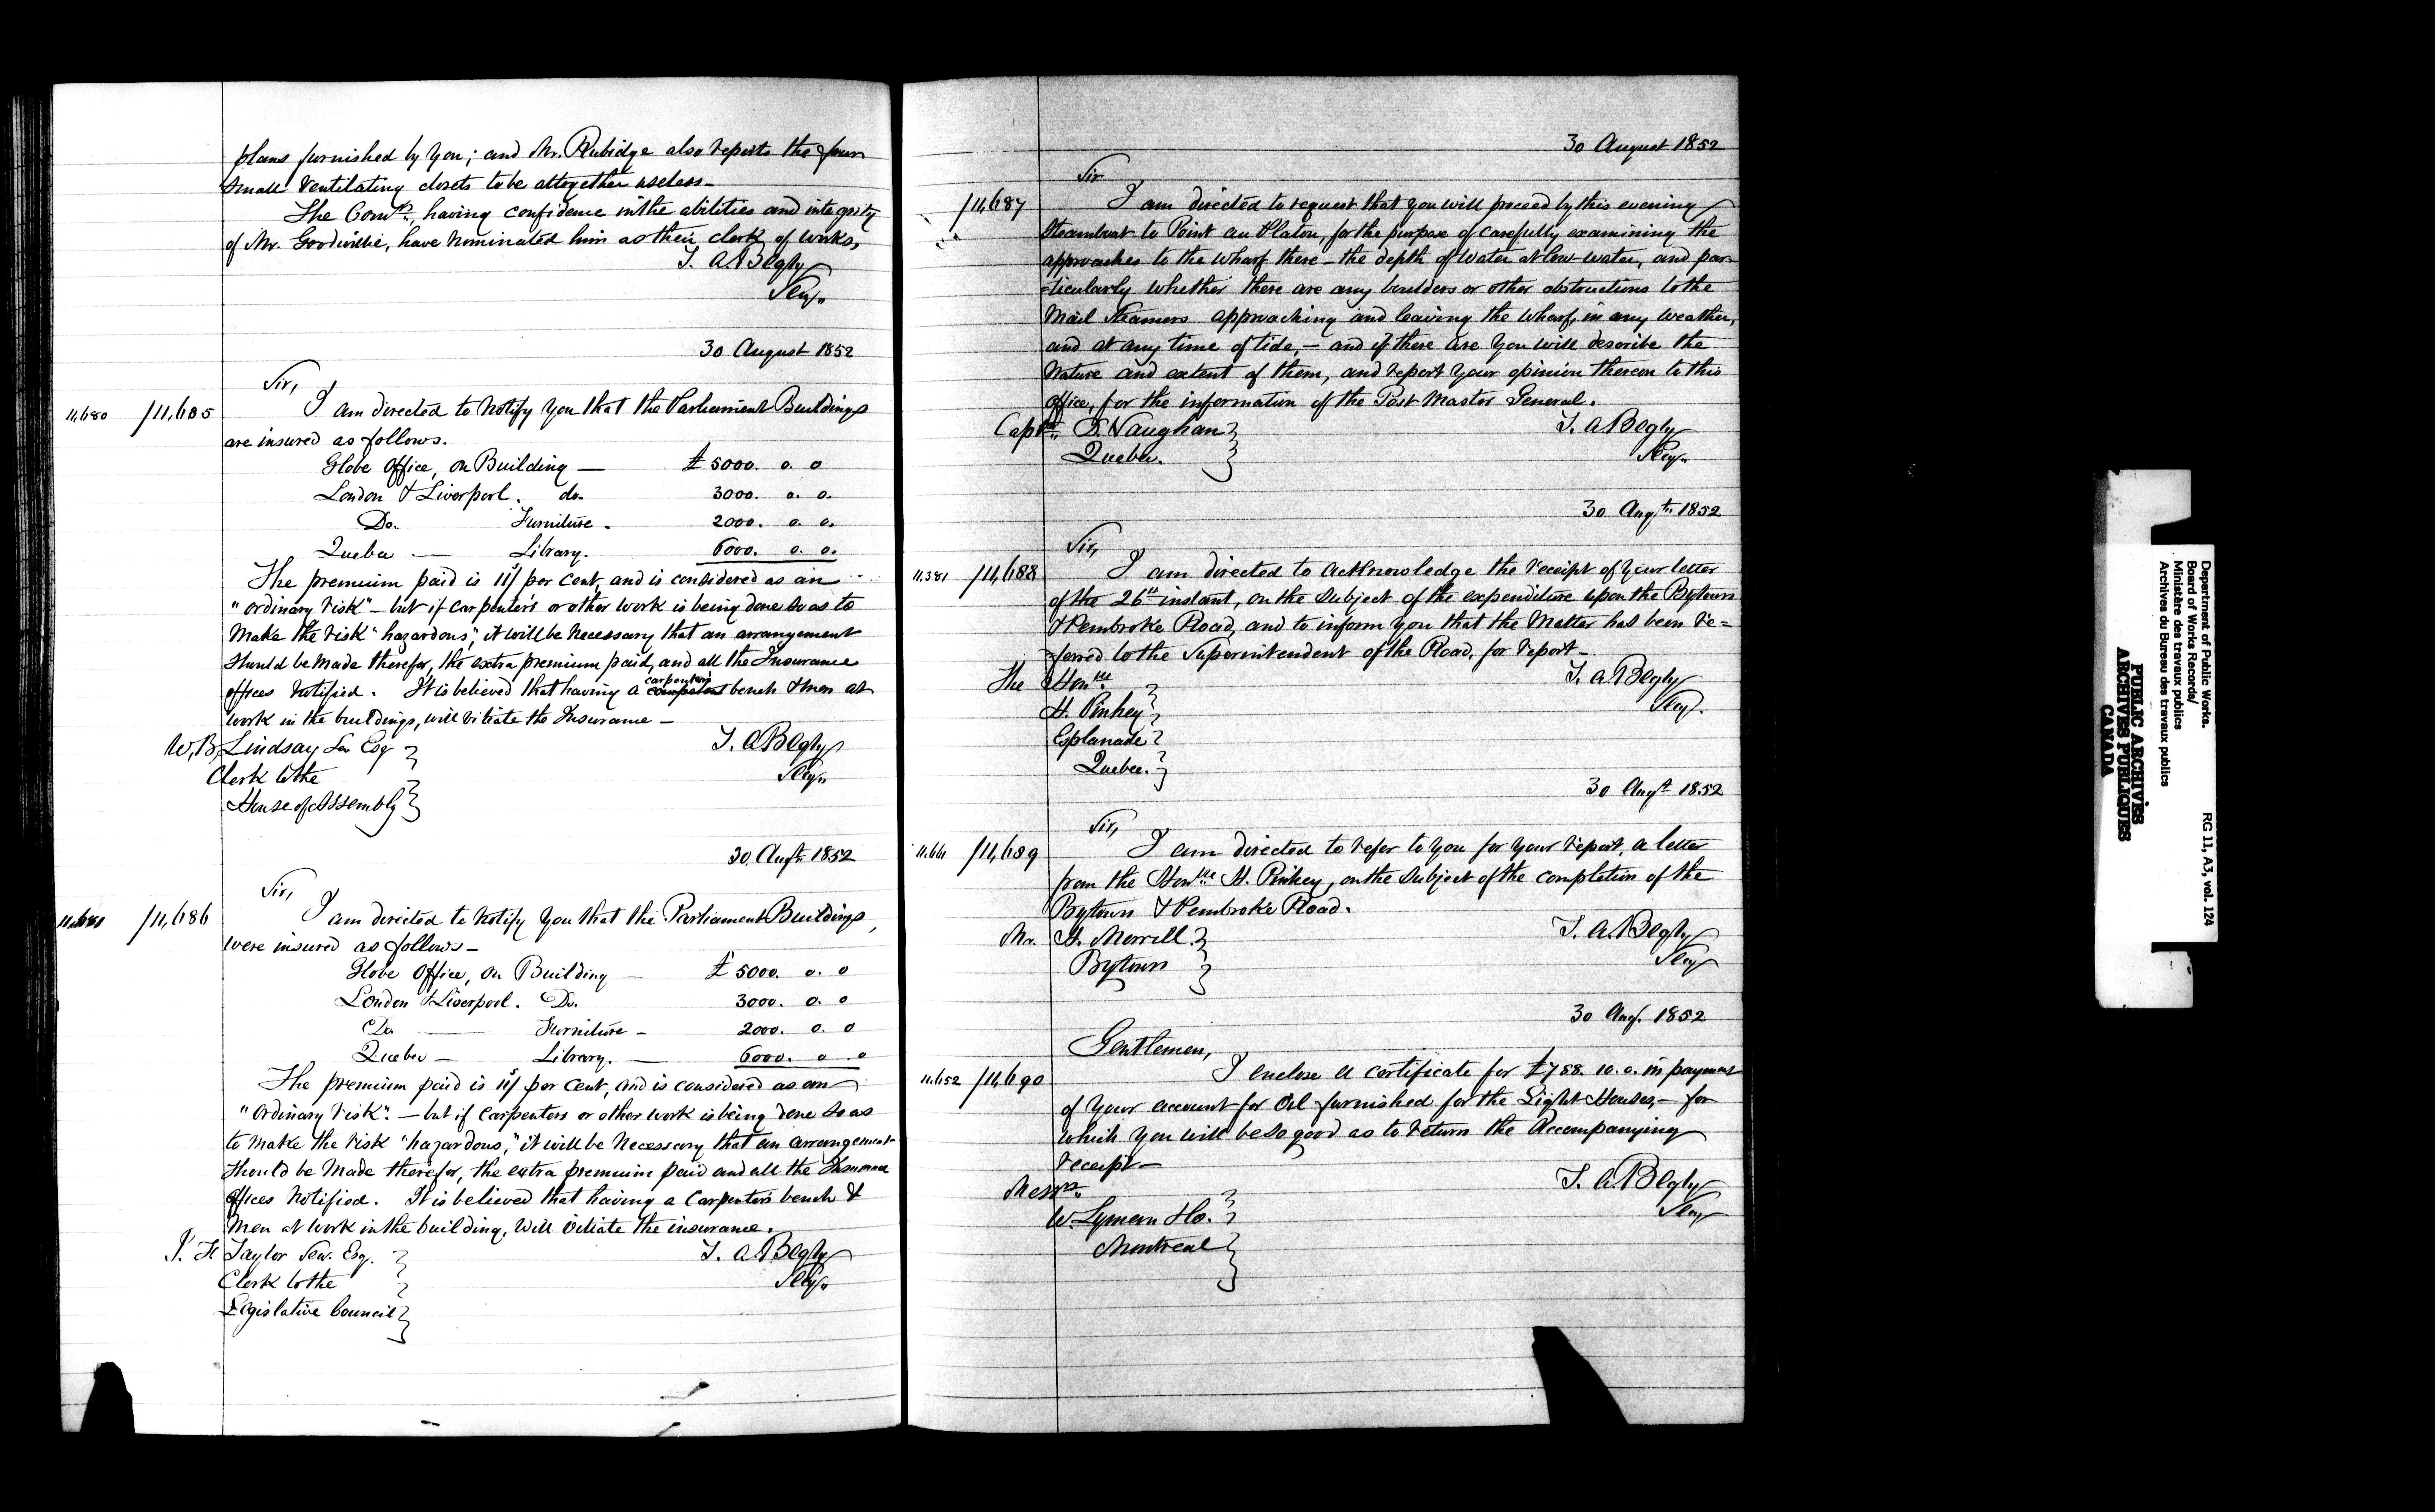 plans furnished by you; and Mr. Rubidge also reports the four
small ventilating closets to be altogether useless –
The Comrs. having confidence in the abilities and integrity
of Mr. Goodwillie, have nominated him as their clerk of works,
T. A. Begly
Secy.
30 August 1852
Sir,
11,680 /11,685 I am directed to notify you that the Parliament Buildings
are insured as follows.
Globe Office, on Building — £ 5000. 0. 0
London & Liverpool. do. 3000. 0. 0.
Do. Furniture. 2000. 0. 0.
Quebec — Library. 6000. 0. 0.
The premium paid is 11s/ per cent, and is considered as an
"ordinary risk" – but if carpenter's or other work is being done so as to
make the risk "hazardous," it will be necessary that an arrangement
should be made therefor, the extra premium paid, and all the Insurance
offices notified. It is believed that having a carpenters bench & men at
work in the buildings, will vitiate the Insurance –
W. B. Lindsay Sen Esq
T. A. Begly
Clerk to the
Secy.
House of Assembly
30 Augt. 1852
Sir,
11,681 /11,686 I am directed to notify you that the Parliament Buildings,
were insured as follows –
Globe Office, on Building — £ 5000. 0. 0
London & Liverpool. Do. 3000. 0. 0
Do — Furniture – 2000. 0. 0
Quebec – Library. — 6000. 0. 0
The premium paid is 11s/ per cent, and is considered as an
"ordinary risk". – but if carpenters or other work is being done so as
to make the risk "hazardous," it will be necessary that an arrangement
should be made therefor, the extra premium paid and all the Insurance
offices notified. It is believed that having a carpenters bench &
men at work in the building, will vitiate the insurance.
Taylor Sen. Esq.
T. A. Begly
Clerk to the
Secy.
Legislative Council
30 August 1852
Sir
/11,687 I am directed to request that you will proceed by this evening
Steamboat to Point au Platon, for the purpose of carefully examining the
approaches to the wharf there – the depth of water at low-water, and par-
-ticularly whether there are any boulders or other obstructions to the
Mail Steamers approaching and leaving the wharf, in any weather,
and at any time of tide, – and if there are you will describe the
nature and extent of them, and report your opinion thereon to this
office, for the information of the Post Master General.
Captn. Vaughan
T. A. Begly
Quebec.
Secy.
30 Augt. 1852
Sir,
11.381 /11,688 I am directed to acknowledge the receipt of your letter
of the 26th instant, on the subject of the expenditure upon the Bytown
& Pembroke Road, and to inform you that the matter has been re=
=ferred to the Superintendent of the Road, for report –
The Honble.
T. A. Begly
H. Pinhey
Secy.
Esplanade
Quebec.
30 Augt. 1852
Sir,
11.661 /11,689 I am directed to refer to you for your report, a letter
from the Honble. H. Pinhey, on the subject of the completion of the
Bytown & Pembroke Road.
Mr. H. Merrill.
T. A. Begly
Bytown
Secy
30 Aug. 1852
Gentlemen,
11.652 /11,690 I enclose a certificate for £788. 10. 0. in payment
of your account for Oil furnished for the Light Houses, – for
which you will be so good as to return the accompanying
receipt –
Messrs.
T. A. Begly
W. Lyman & Co.
Secy
Montreal
Department of Public Works.
Board of Works Records/
Ministère des travaux publics
Archives du Bureau des travaux publics
RG 11, A3, vol. 124
PUBLIC ARCHIVES
ARCHIVES PUBLIQUES
CANADA